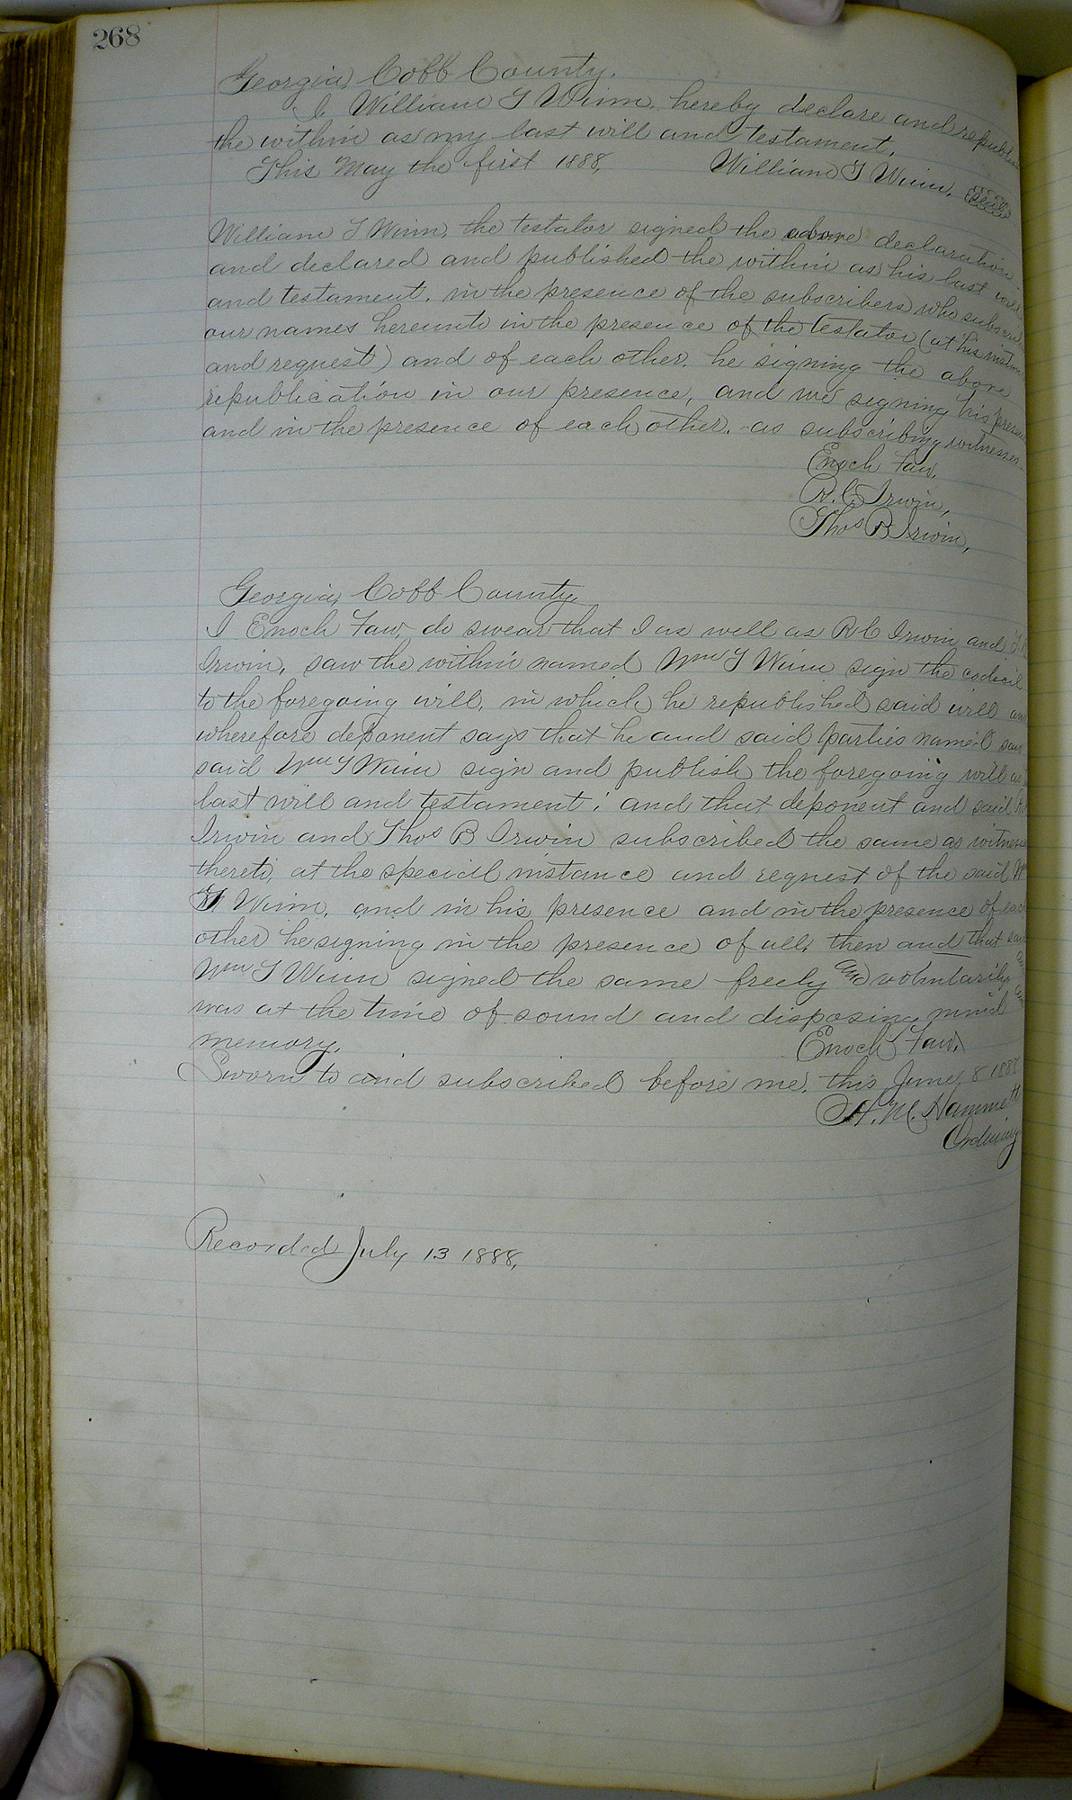 268
Georgia, Cobb County.
I, William T Winn, hereby declare and republish
the within as my last will and testament.
This May the first 1888, William T Winn, Seal
William T Winn, the testator signed the above declaration
and declared and published the within as his last will
and testament, in the presence of the subscribers who subscribed
our names hereunto in the presence of the testator (at his instance
and request) and of each other. he signing the above
republication in our presence, and we signing his presence
and in the presence of each other, as subscribing witnesses.
Enoch Faw,
R. C. Irwin,
Thos B Irwin,
Georgia, Cobb County,
I Enoch Faw, do swear that I as well as R C Irwin and
Irwin, saw the within named Wm T Winn sign the codicil
to the foregoing will, in which he republished said will
wherefore deponent says that he and said parties named saw
said Wm T Winn sign and publish the foregoing will as
last will and testament; and that deponent and said
Irwin and Thos B Irwin subscribed the same as witnesses
thereto, at the special instance and request of the said Wm
T Winn, and in his presence and in the presence of each
other he signing in the presence of all, then and that said
Wm T Winn signed the same freely and voluntarily
was at the time of sound and disposing mind
memory. Enoch Faw,
Sworn to and subscribed before me, this June 8 1888
H. M. Hammett
Ordinary
Recorded July 13 1888,